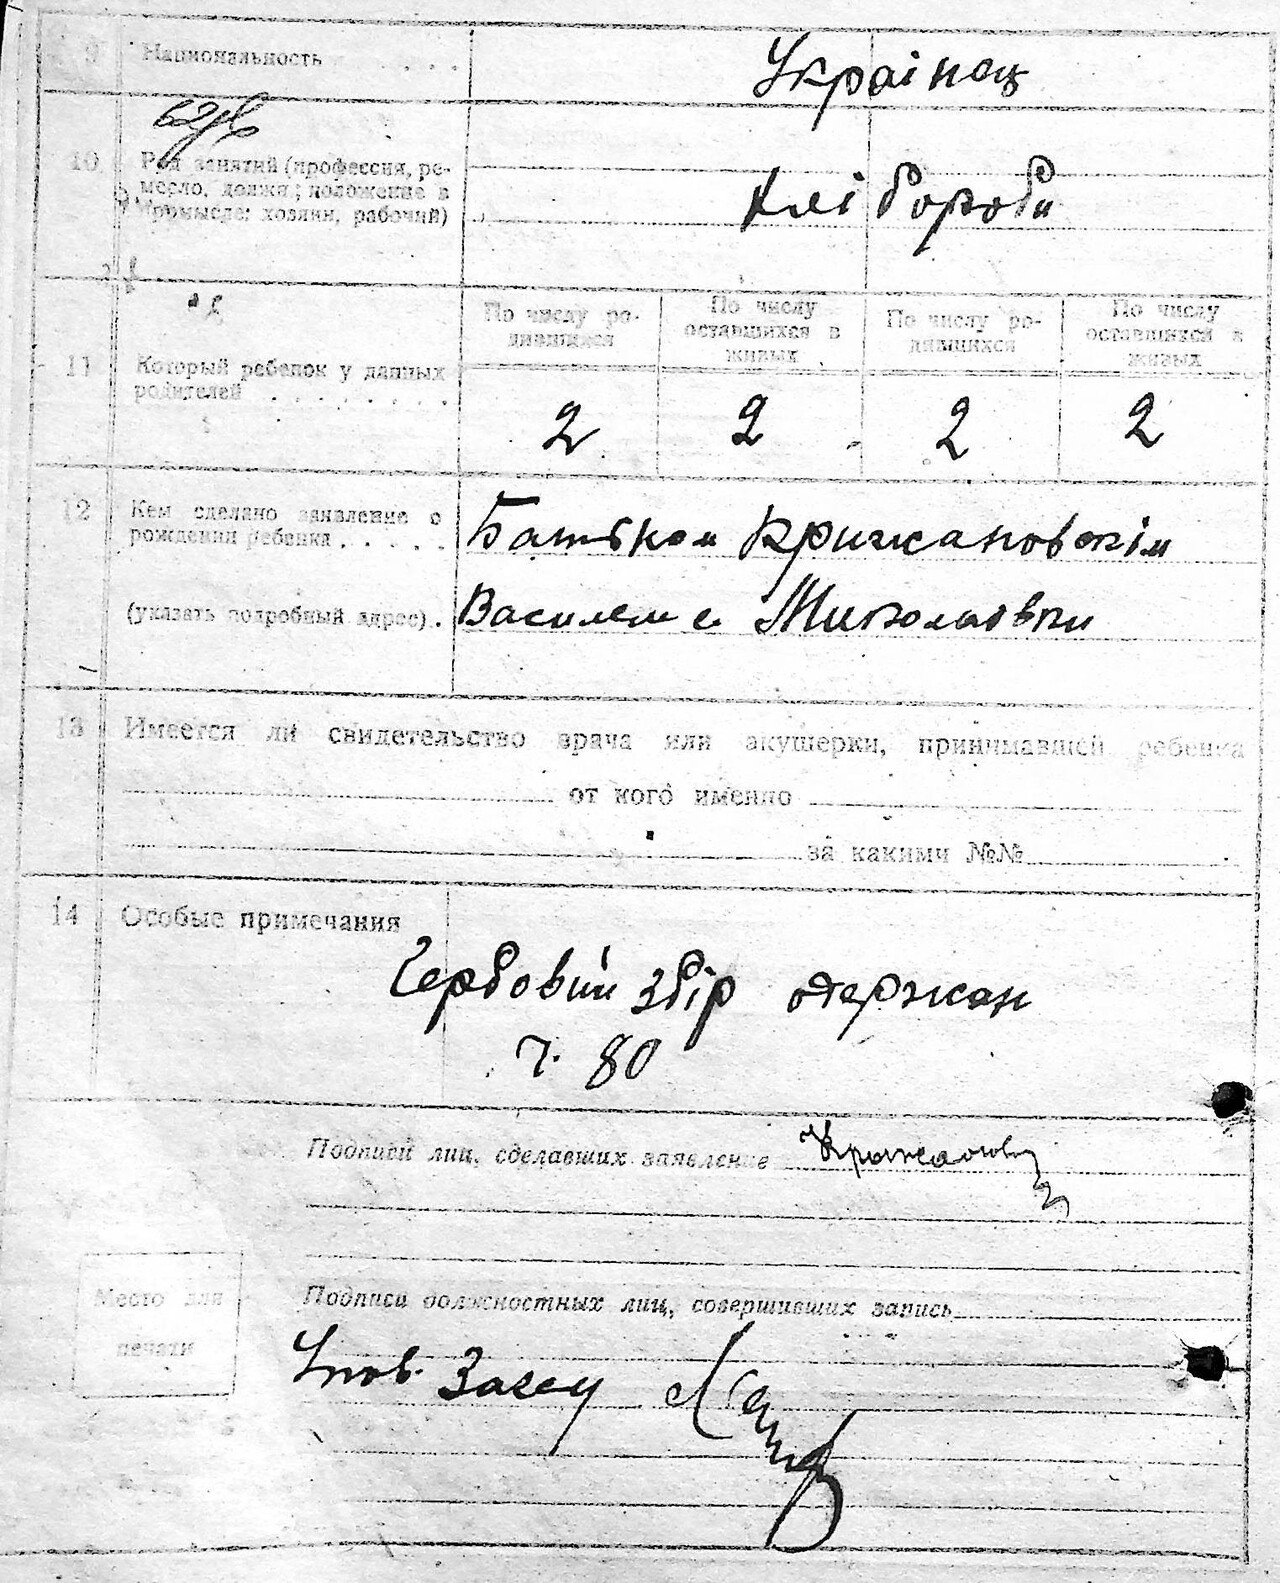 9 Национальность . . . . Українец
10 Род занятий (профессия, ре-
месло, должн; положение в
промысле: хозяин, рабочий)
Хліборобы
По числу ро-
дившихся
По числу
оставшихся в
живых
По числу ро-
дившихся
По числу
оставшихся в
живых
11 Который ребенок у данных
родителей . . . . . . . .
2 2 2 2
12 Кем сделано заявление о
рождении ребенка . . . . .
Батьком Крижановскім
(указать подробный адрес) .
Василем с. Миколаівки
13 Имеется ли свидетельство врача или акушерки, принимавшей ребенка
от кого именно
за какими №№
14 Особые примечания
Гербовий збір одержан
г. 80
Подписи лиц, сделавших заявление
Место для
печати
Подписи должностных лиц, совершивших запись
Упов. Загсу